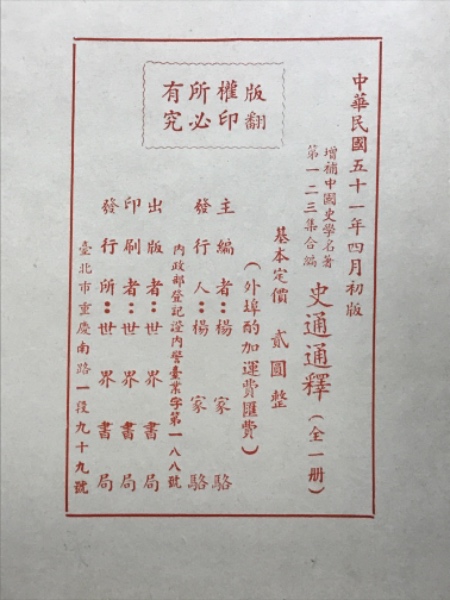 中華民國五十一年四月初版
增補中國史學名著
第一二三集合編
史通通釋（全一册）
基本定價　貳圓整
（外埠酌加運費匯費）
主編者：楊家駱
發行人：楊家駱
內政部登記證內警臺業字第一八八號
出版者：世界書局
印刷者：世界書局
發行所：世界書局
臺北市重慶南路一段九十九號
版權所有
翻印必究